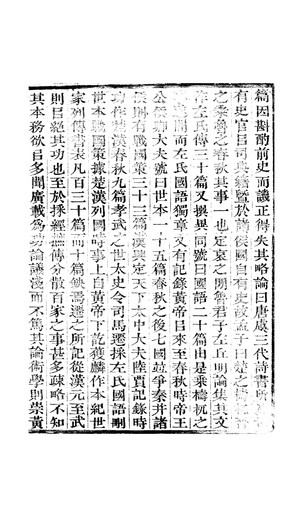 篇因斟酌前史而譏正得失其略論曰唐虞三代詩書所
有史官㠯司典籍暨於諸侯國自有史故孟子曰楚之檮杌
之乘魯之春秋其事一也定哀之閒魯君子左丘明論集其文
作左氏傳三十篇又撰異同號曰國語二十篇由是乘檮杌之
闇而左氏國語獨章又有記錄黃帝㠯來至春秋時帝王
公侯卿大夫號曰世本一十五篇春秋之後七國並爭秦并諸
侯則有戰國策三十三篇漢興定天下太中大夫陸賈記錄時
功作楚漢春秋九篇孝武之世太史令司馬遷採左氏國語刪
世本戰國策據楚漢列國時事上自黃帝下訖獲麟作本紀世
家列傳書表凡百三十篇而十篇缺焉遷之所記從漢元至武
則㠯絕其功也至於採經摭傳分散百家之事甚多疎略不如
其本務欲㠯多聞廣載爲功論議淺而不篤其論術學則崇黃